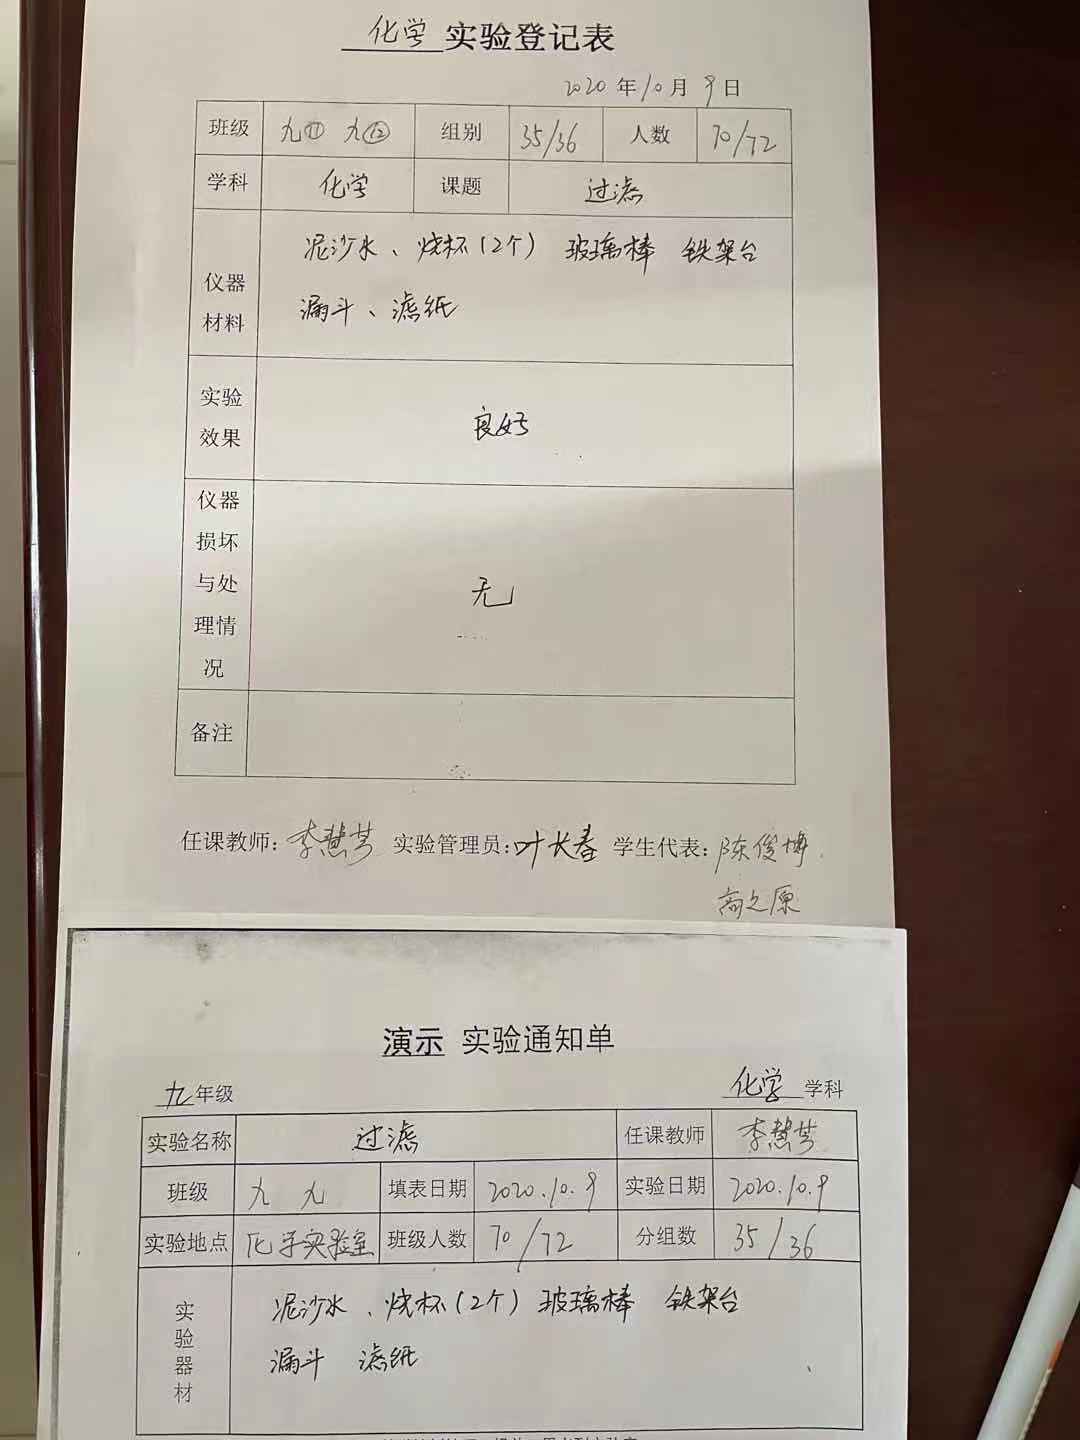 化学 实验登记表
2020 年 10 月 9 日
班级 九⑪ 九⑫ 组别 35/36 人数 70/72
学科 化学 课题 过滤
仪器材料 泥沙水、烧杯(2个) 玻璃棒 铁架台
漏斗、滤纸
实验效果 良好
仪器损坏与处理情况 无
备注
任课教师:李慧芳 实验管理员:叶长春 学生代表:陈俊博
高之原
演示 实验通知单
九年级 化学 学科
实验名称 过滤 任课教师 李慧芳
班级 九 九 填表日期 2020.10.9 实验日期 2020.10.9
实验地点 化学实验室 班级人数 70/72 分组数 35/36
实验器材 泥沙水、烧杯(2个) 玻璃棒 铁架台
漏斗 滤纸